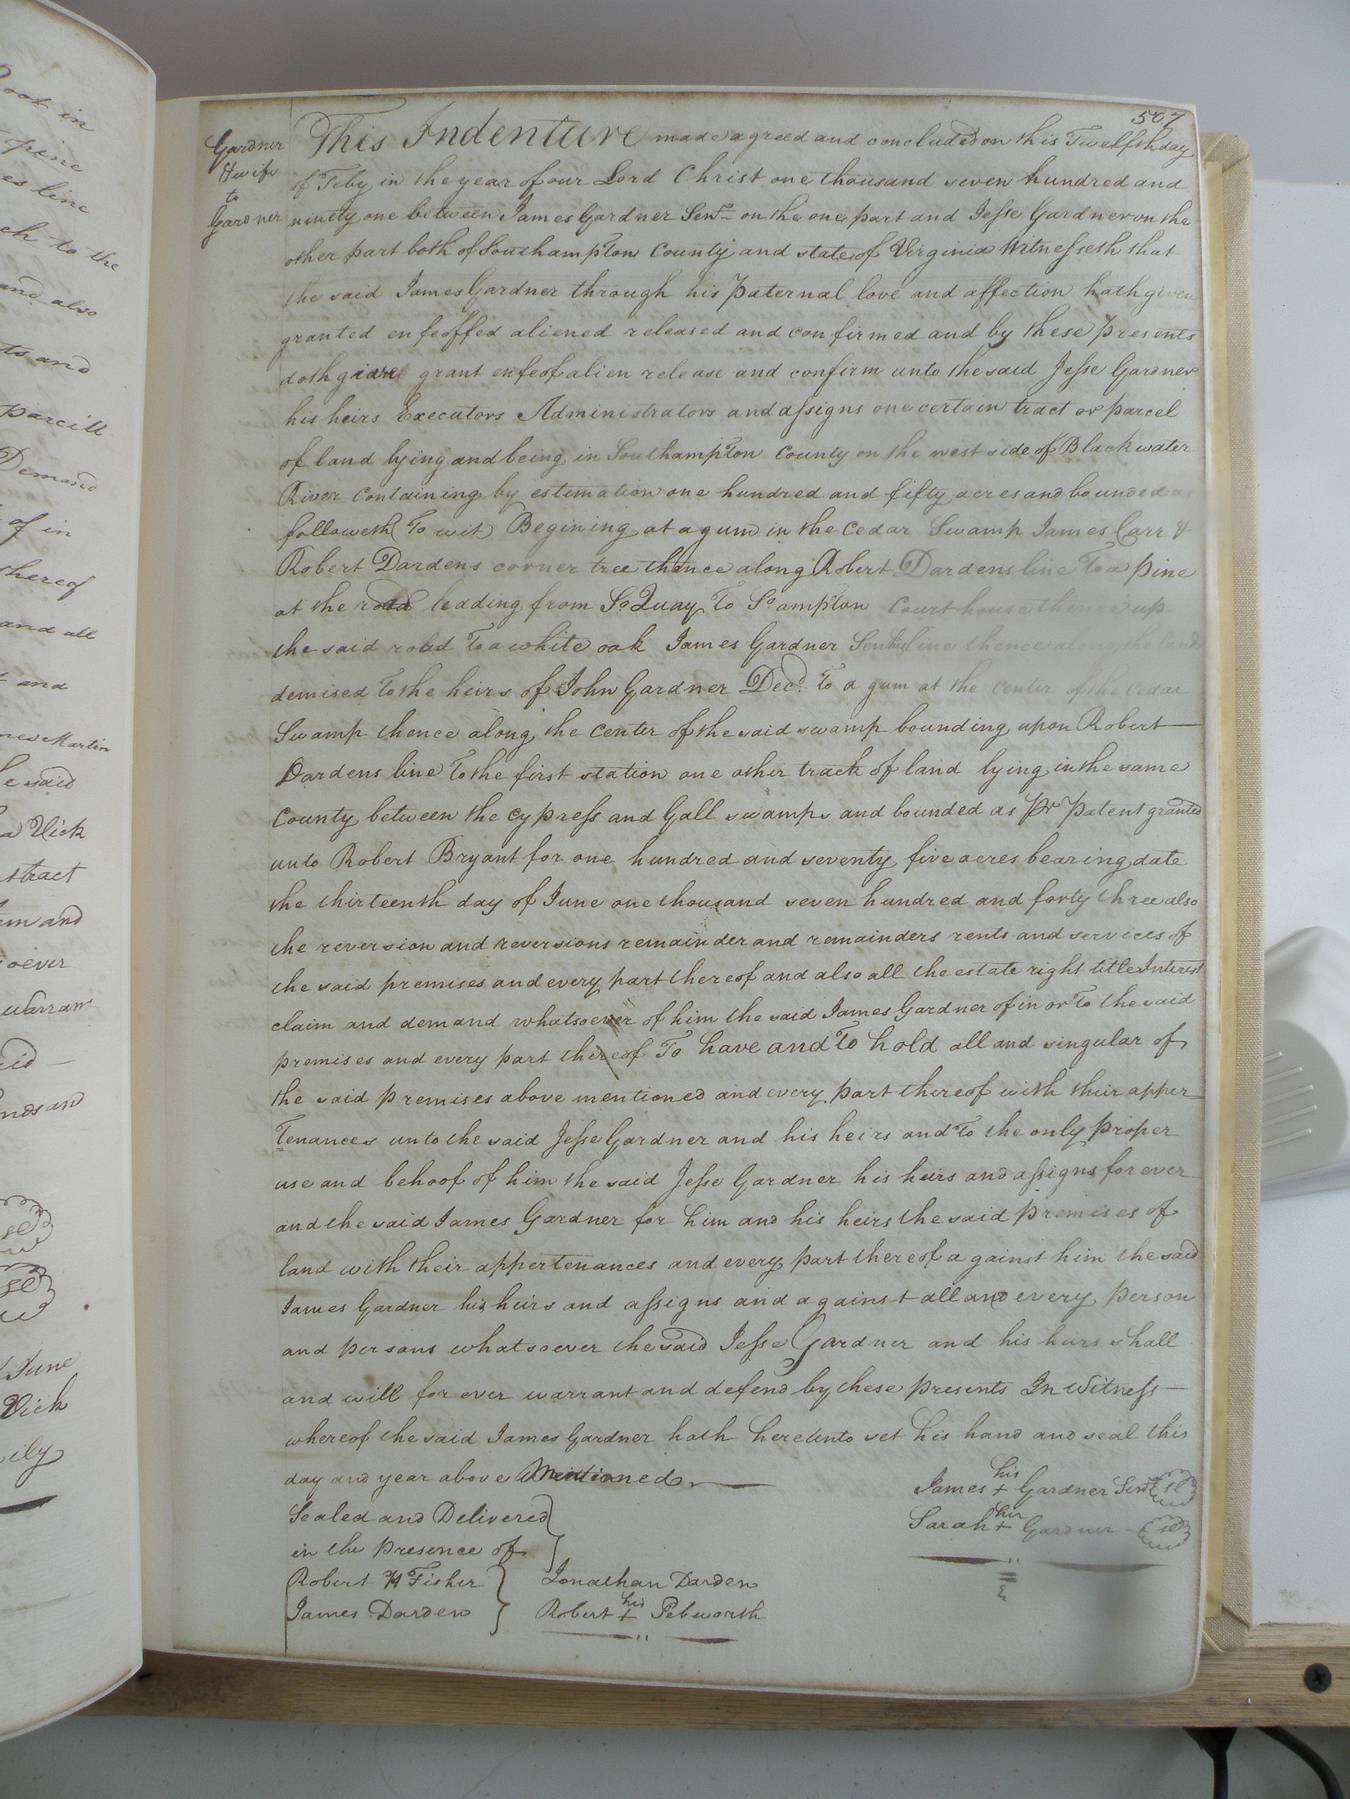 507
Gardner
& wife
to
Gardner
This Indenture made agreed and concluded on this Twelfth day
of Feby in the year of our Lord Christ one thousand seven hundred and
ninety one between James Gardner Senr on the one part and Jesse Gardner on the
other part both of Southampton County and state of Virginia Witnesseth that
the said James Gardner through his Paternal love and affection hath given
granted enfeoffed aliened released and confirmed and by these presents
doth give grant enfeof alien release and confirm unto the said Jesse Gardner
his heirs Executors Administrators and assigns one certain tract or parcel
of land lying and being in Southampton County on the west side of Blackwater
River Containing by estimation one hundred and fifty acres and bounded as
followeth (To wit) Begining at a gum in the Cedar Swamp James Carr &
Robert Dardens corner tree thence along Robert Dardens line To a pine
at the road leading from So Quay To So ampton Court house thence up
the said road To a white oak James Gardner line thence along the land
demised To the heirs of John Gardner Decd. To a gum at the center of the Cedar
Swamp thence along the Center of the said swamp bounding upon Robert
Dardens line To the first station one other track of land lying in the same
County between the cypress and Gall swamps and bounded as Pr Patent granted
unto Robert Bryant for one hundred and seventy five acres bearing date
the thirteenth day of June one thousand seven hundred and forty three also
the reversion and reversions remainder and remainders rents and services of
the said premises and every part thereof and also all the estate right title Interest
claim and demand whatsoever of him the said James Gardner of in or To the said
premises and every part thereof To have and To hold all and singular of
the said premises above mentioned and every part thereof with their apper
Tenances unto the said Jesse Gardner and his heirs and To the only proper
use and behoof of him the said Jesse Gardner his heirs and assigns for ever
and the said James Gardner for him and his heirs the said premises of
land with their appertenances and every part thereof a gainst him the said
James Gardner his heirs and assigns and against all and every person
and persons whatsoever the said Jesse Gardner and his heirs shall
and will for ever warrant and defend by these presents In Witness
whereof the said James Gardner hath hereunto set his hand and seal this
day and year above Mentioned
James his + Gardner Senr se
Sarah her + Gardner se
Sealed and Delivered
in the presence of
Robert H Fisher
James Darden
Jonathan Darden
Robert his + Pebworth
ook in
pine
es line
ch to the
and also
ts and
parcill
Demand
of in
thereof
and all
and
Martin
he said
a Vick
tract
and
soever
warran
nds and
se
se
June
Vick